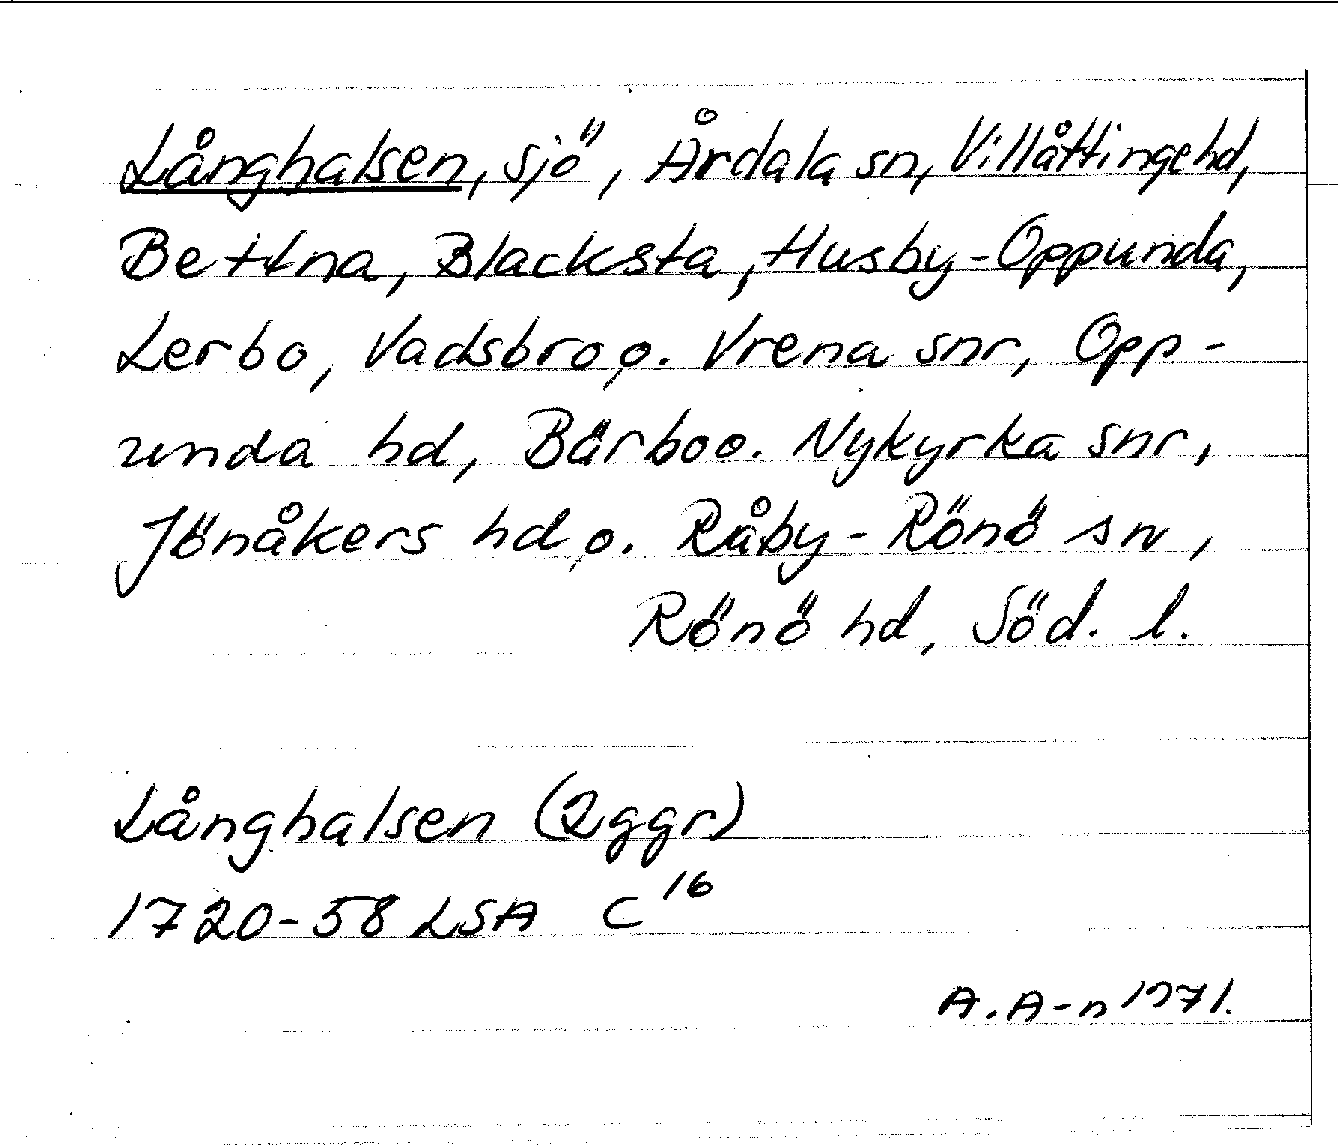 Långhalsen, sjö, Årdala sn, Villåttinge hd,
Bettna, Blacksta, Husby-Oppunda,
Lerbo, Vadsbro o. Vrena snr, Opp-
unda hd, Bärbo o. Nykyrka snr,
Jönåkers hd o. Råby-Rönö sn,
Rönö hd, Söd. l.
Långhalsen (2 ggr)
1720-58 LSA C 16
A. A-n 1971.